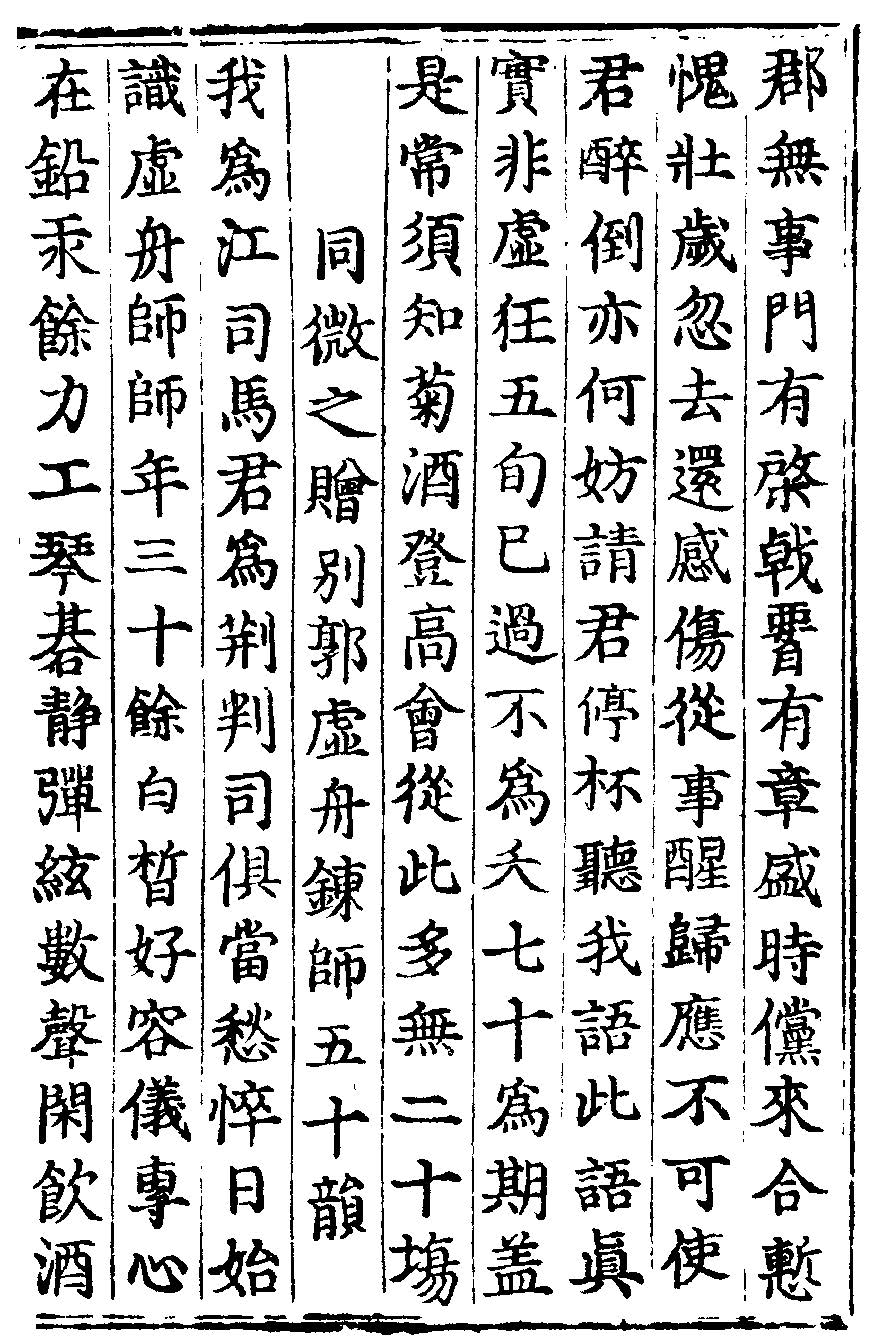 郡無事門有棨戟臀有章盛時儻來合慙
愧壯歲忽去還感傷從事醒歸應不可使
君醉倒亦何妨請君停杯聽我語此語眞
實非虛狂五旬已過不爲夭七十爲期盖
是常須知菊酒登高會從此多無二十塲
同微之贈別郭虛舟鍊師五十韻
我爲江司馬君爲荆判司俱當愁悴日始
識虛舟師師年三十餘白晳好容儀專心
在鉛汞餘力工琴棊静彈絃數聲閑飲酒